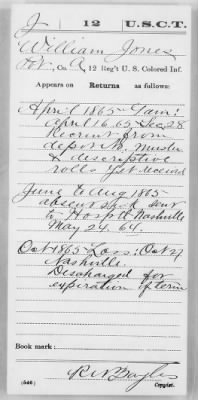 J 12 U.S.C.T.
William Jones
Pvt., Co. A, 12 Reg't U. S. Colored Inf.
Appears on Returns as follows:
April 1865
April 16. 65
Recruit from
depot N.
& descriptive
rolls yet received
June to Aug 1865
absent sick sent
to Hosp'tl Nashville
May 24, 64.
Oct 1865 Loss: Oct 27
Nashville.
Discharged for
expiration of term
Book mark:
(546) Copyist.